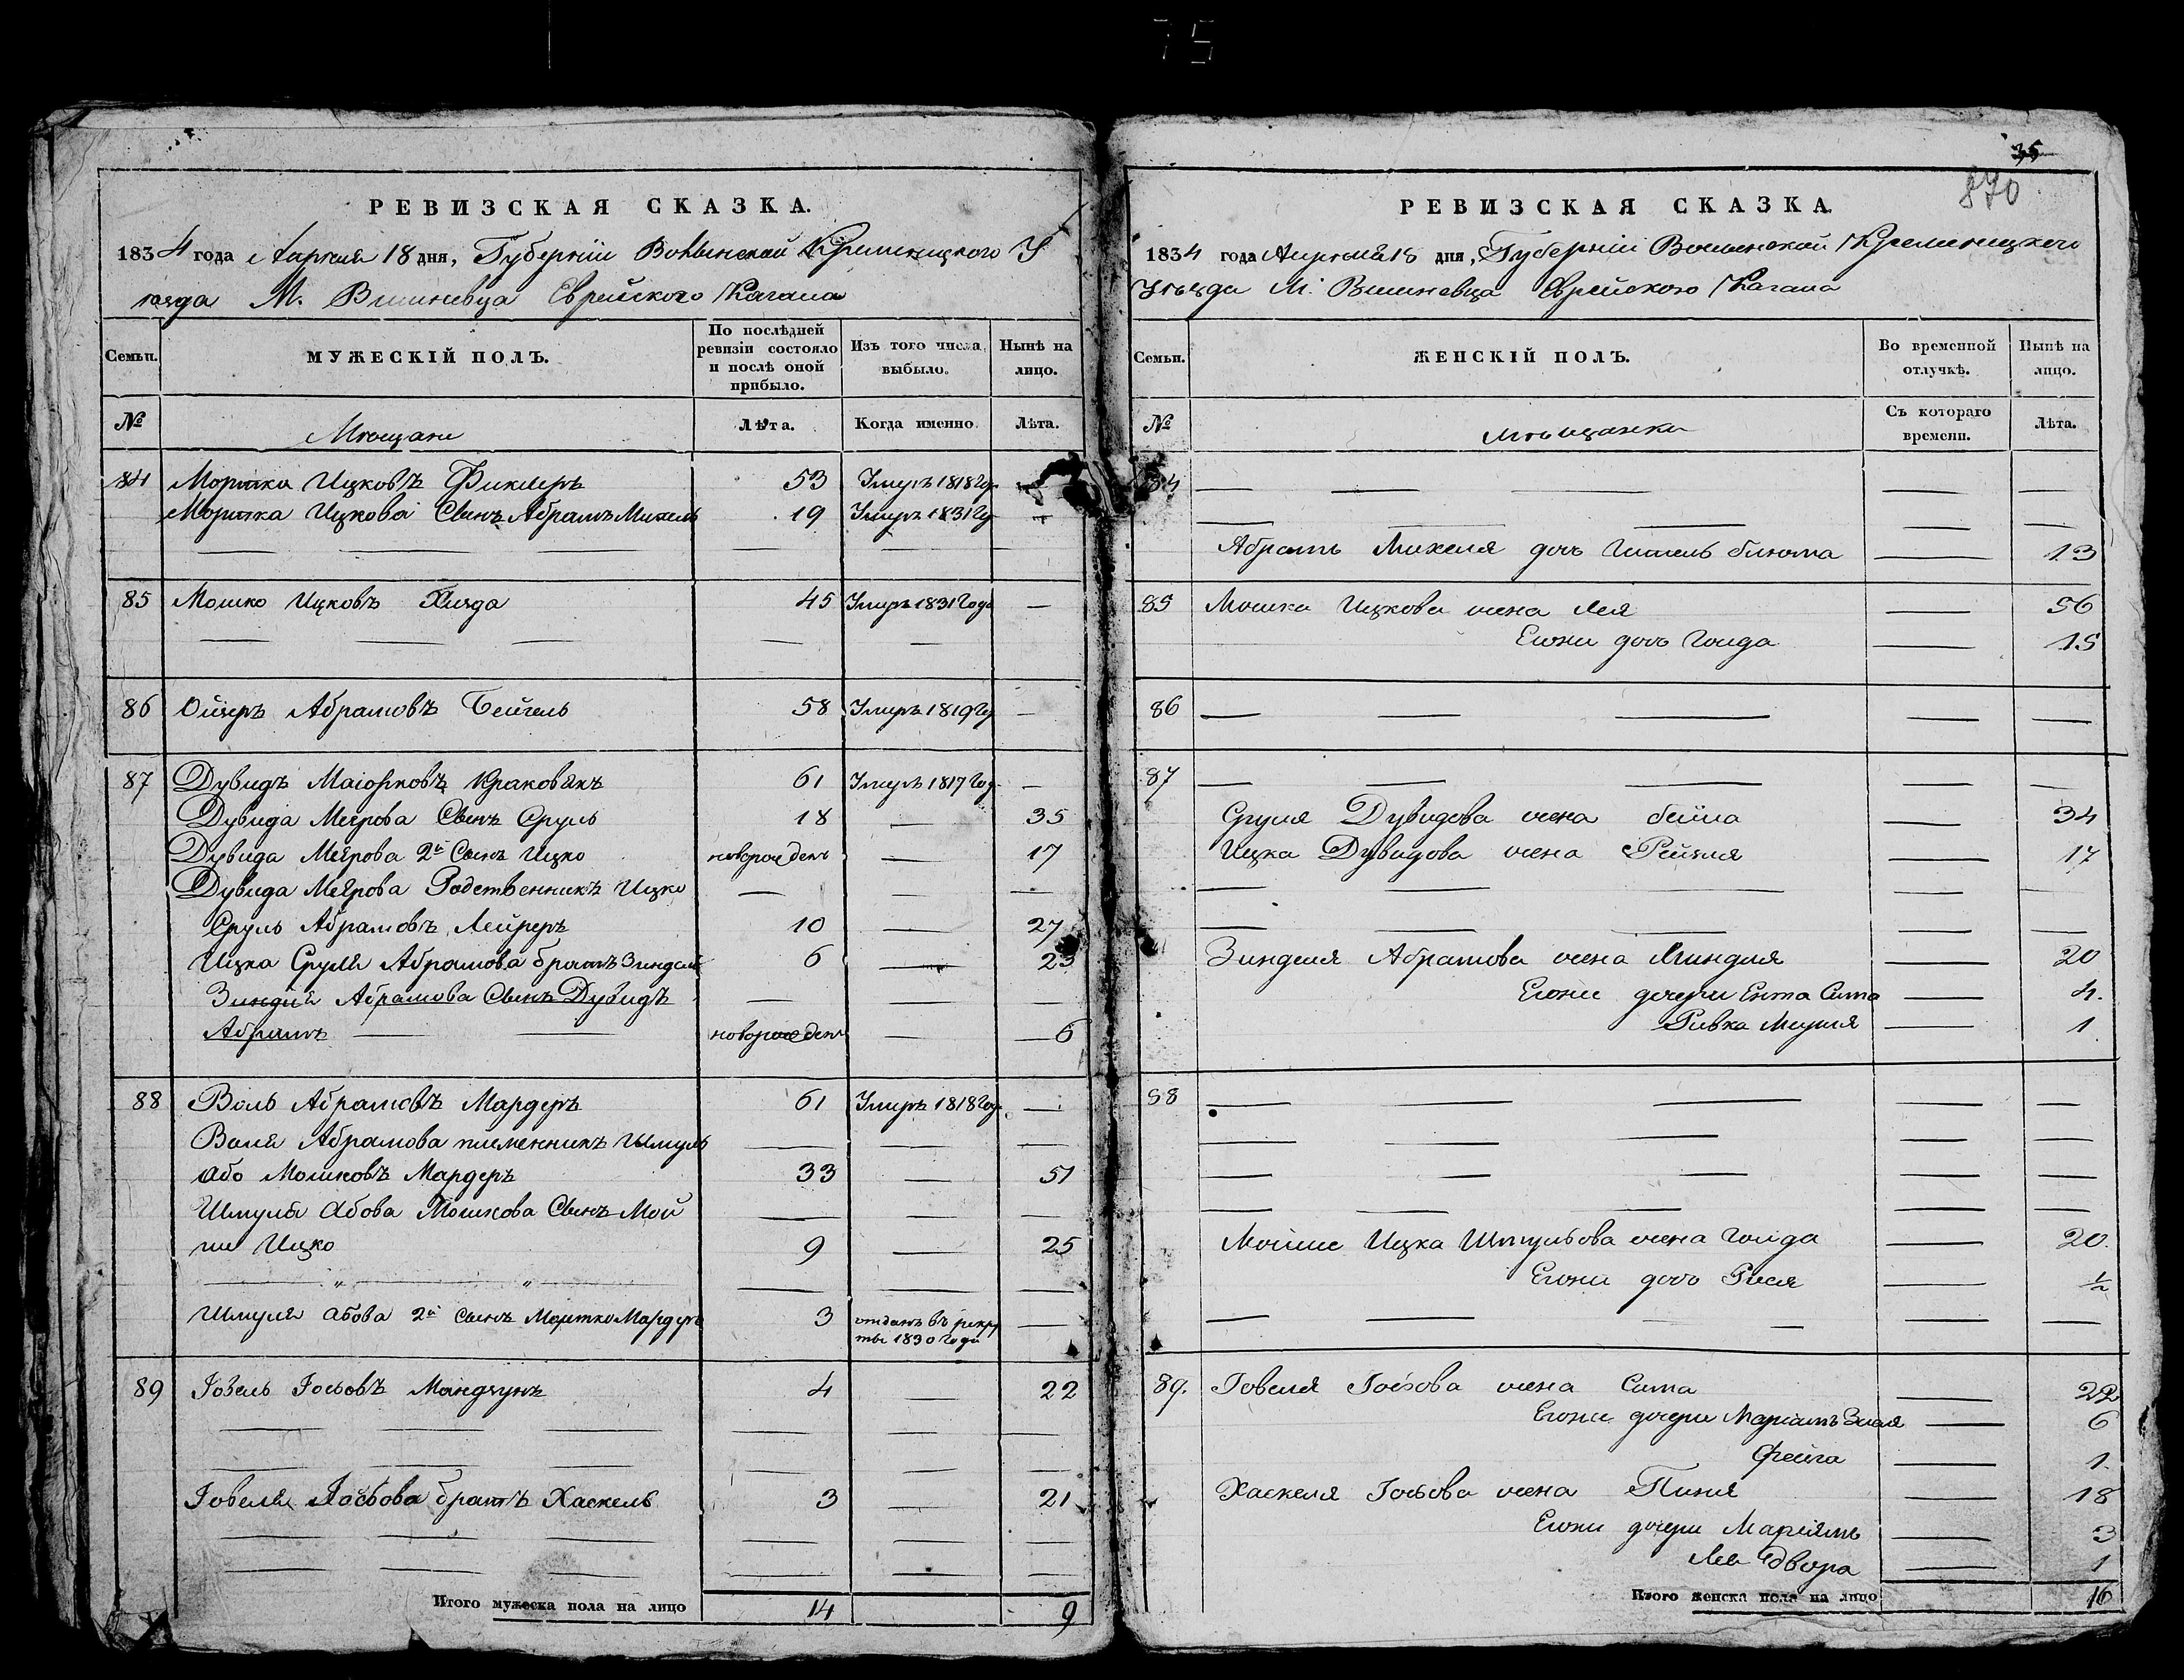 75
РЕВИЗСКАЯ СКАЗКА.
1834 года Апреля 18 дня, Губернии Волынской Кременецкого У
езда М. Вишневца Еврейского Кагала
Семьи.
МУЖЕСКІЙ ПОЛЪ.
По послѣдней ревизіи состояло и послѣ оной прибыло.
Изъ того числа выбыло.
Нынѣ на лицо.
№
Мещане
Лѣта.
Когда именно.
Лѣта.
84 Мортка Ицковъ 53 Умеръ 1818 го —
Мортка Ицкова Сынъ Абрамъ Михель 19 Умеръ 1831 го —
85 Мошко Ицковъ 45 Умеръ 1831 года —
86 Ойзеръ Абрамовъ Бейгель 58 Умеръ 1819 го —
87 Дувидъ Маіорковъ Краковякъ 61 Умеръ 1817 год —
Дувида Меерова Сынъ Сруль 18 — 35
Дувида Меерова 2й Сынъ Ицко новорожденъ — 17
Дувида Меерова Родственникъ Ицко — —
Сруль Абрамовъ Лейреръ 10 — 27
Ицка Суля Абрамова братъ Зиндель 6 — 23
Зинделя Абрамова Сынъ Дувидъ — — —
Абрамъ новорожденъ — 6
88 Воль Абрамовъ Мардеръ 61 Умеръ 1818 год —
Воля Абрамова племенникъ Шмуль — — —
Або Мошковъ Мардеръ 33 — 51
Шмуля Абова Мошкова Сынъ Мой — — —
ше Ицко 9 — 25
— " — " — — — —
Шмуля Абова 2й Сынъ Мортко Мардеръ 3 отданъ въ рекру —
ты 1830 года
89 Іовель Іосьовъ 4 — 22
Іовеля Іосьова братъ Хаскель 3 — 21
Итого мужеска пола на лицо 14 9
35
870
РЕВИЗСКАЯ СКАЗКА.
1834 года Апреля 18 дня, Губерніи Волынской Кременецкого
Уезда М. Вишневца Еврейского Кагала
Семьи.
ЖЕНСКІЙ ПОЛЪ.
Во временной отлучкѣ.
Нынѣ на лицо.
№
Мѣщанки
Съ котораго времени.
Лѣта.
84 — — — — —
Абрамъ Михеля дочь — 13
85 Мошка Ицкова жена Лея — 56
Ейони дочь Голда — 15
86 — — — — —
87 — — — — —
Сруля Дувидова жена Бейла — 34
Ицка Дувидова жена Рейзля — 17
Зинделя Абрамова жена Миндля — 20
Ейони дочери Ента Сима — 4.
Ривка — 1
88 — — — — —
Мойше Ицка Шмульова жена Голда — 20.
Ейони дочь Рися — ½
89. Іовеля Іосьова жена Сима — 22
Ейони дочери Маріамъ Злая — 6
Фейга — 1.
Хаскеля Іосьова жена — 18
Ейони дочери Маріямъ — 3
Двора — 1
Итого женска пола на лицо 16